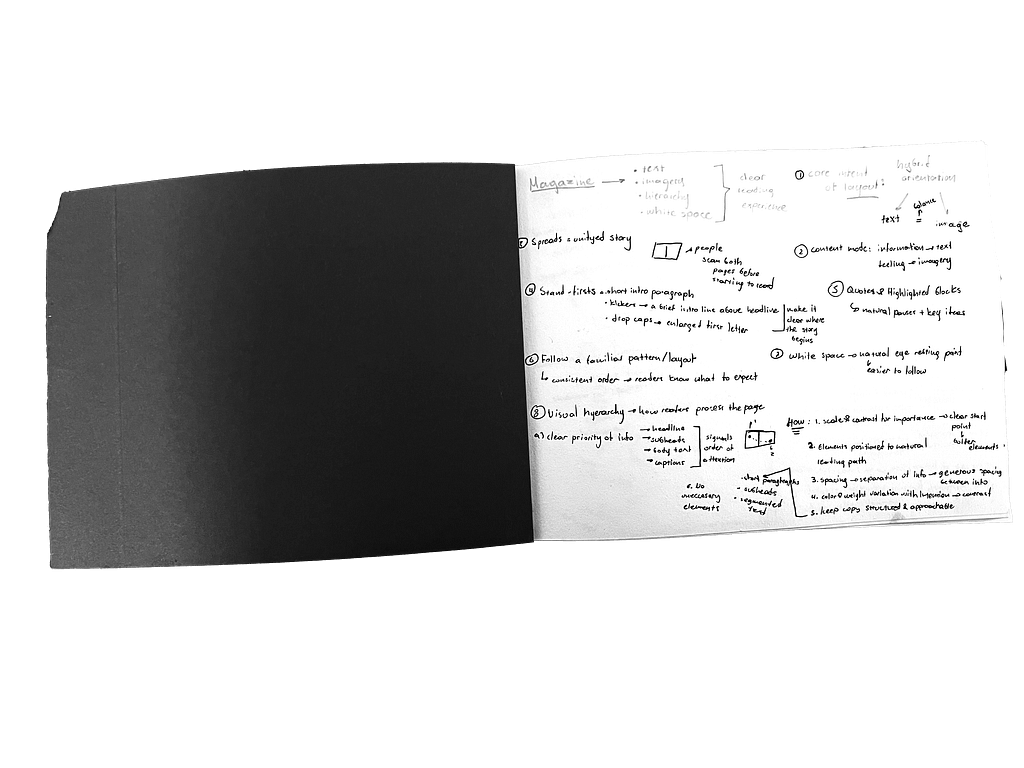 Magazine →
• text
• imagery
• hierarchy
• white space
clear
reading
experience
① core intent
of layout:
hybrid
orientation
balance
text = image
Spreads = unifyed story
→ people
scan both
pages before
starting to read
② content mode: information → text
feeling → imagery
④ Stand-firsts → short intro paragraph
• kickers → a brief intro line above headline
• drop caps → enlarged first letter
make it
clear where
the story
begins
⑤ Quotes & Highlighted Blocks
↳ natural pauses + key ideas
⑥ Follow a familiar pattern/layout
↳ consistent order → readers know what to expect
white space → natural eye resting point
easier to follow
⑧ Visual hyerarchy → how readers process the page
a) clear priority of info
→ headline
→ subheads
→ body text
→ captions
signals
order of
attention
1
2
How: 1. scale & contrast for importance → clear start
point
↓
other
elements.
2. Elements positioned to natural
reading path
3. spacing → separation of info → generous spacing
between info
4. color & weight variation with intention → contrast
5. keep copy structured & approachable
• short paragraphs
• subheads
• segmented
text
6. No
unecessary
elements